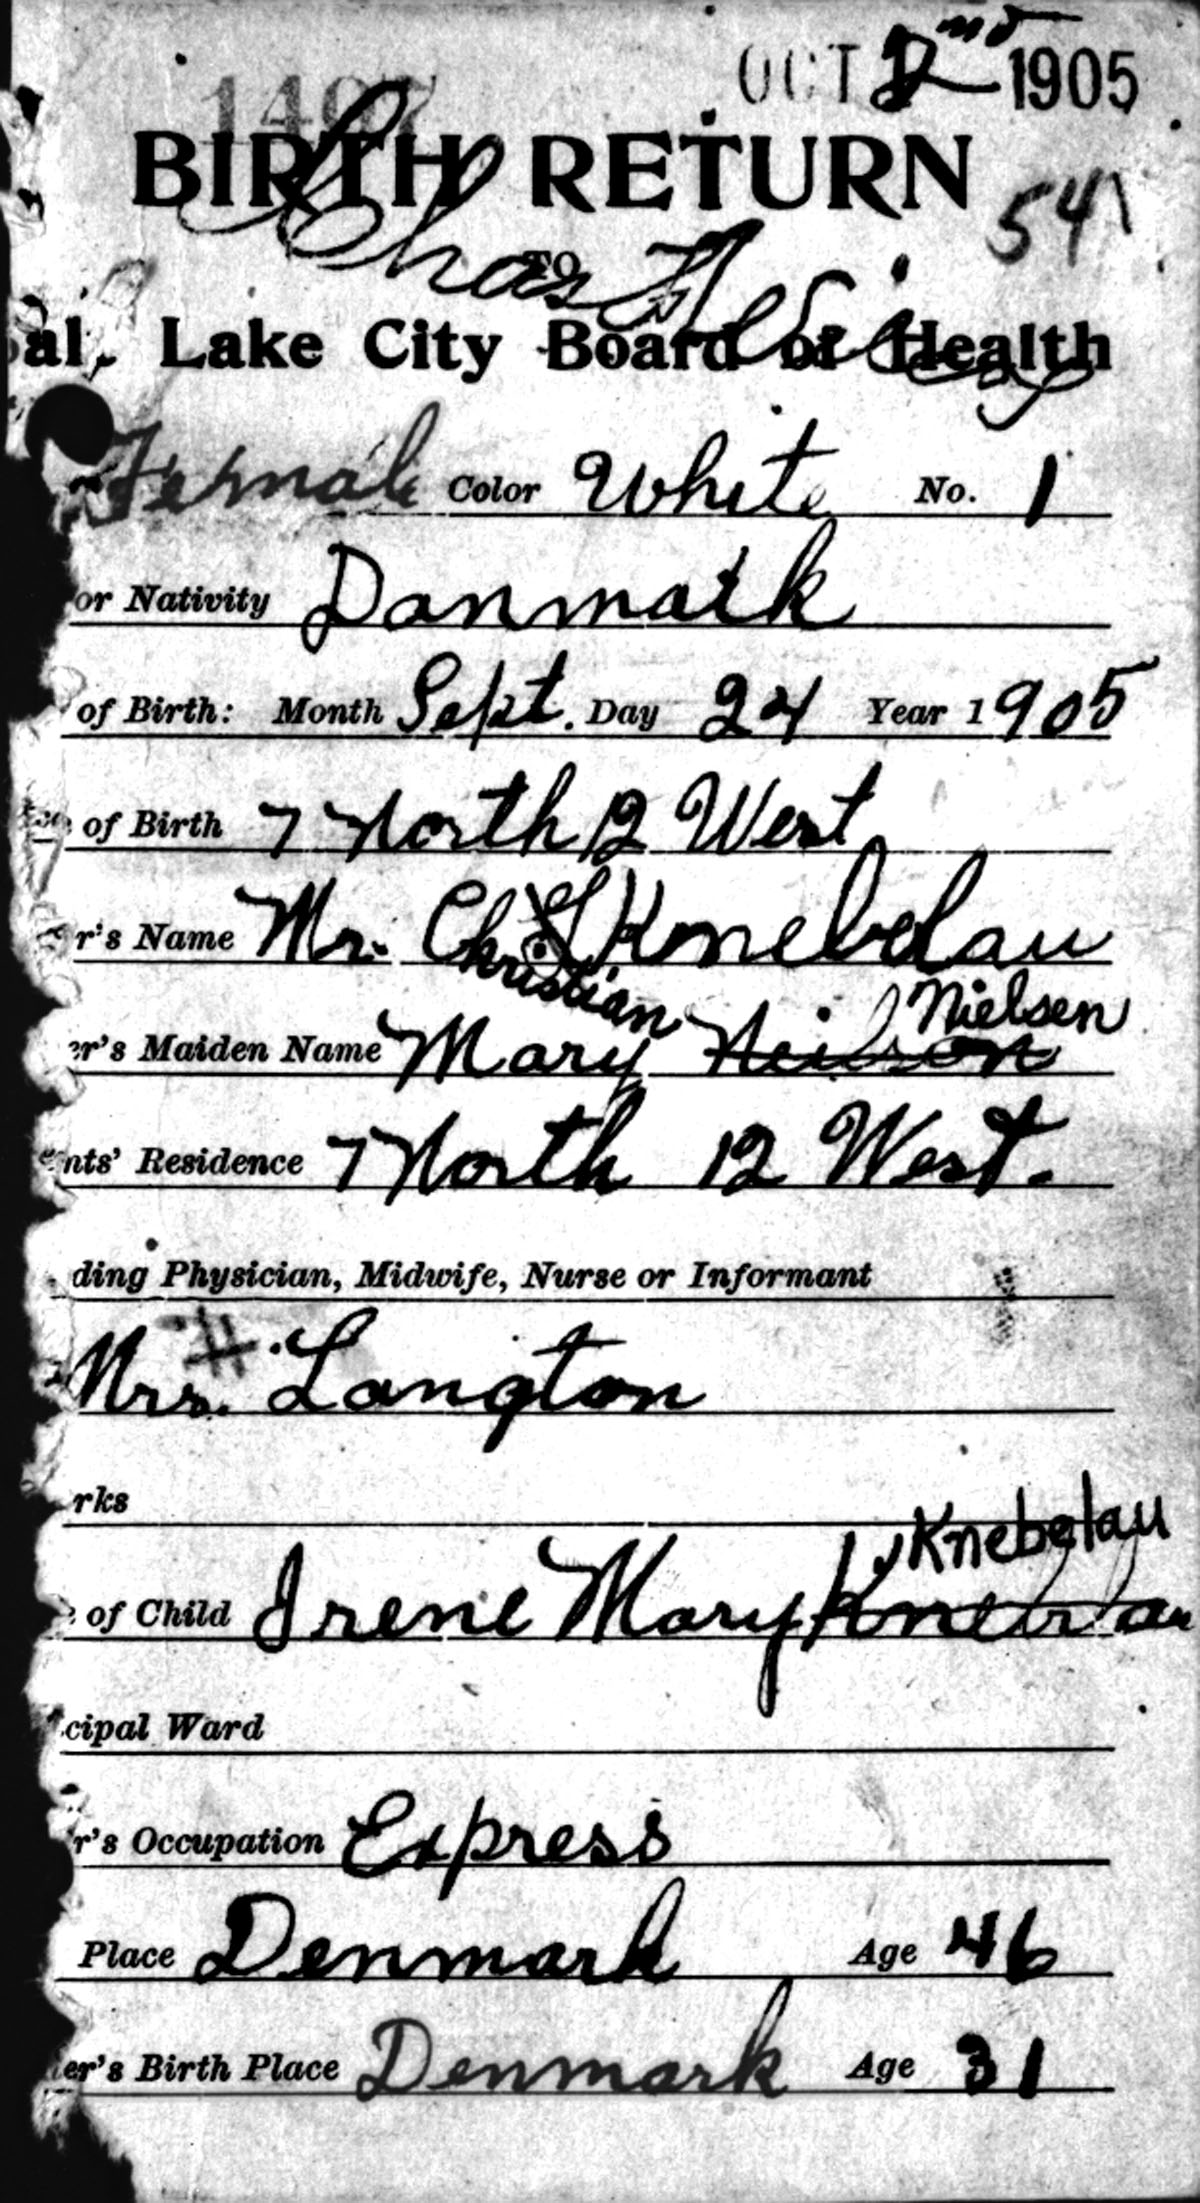 OCT 2nd 1905
1497
BIRTH RETURN
541
TO
Chas
al. Lake City Board of Health
Female Color White No. 1
or Nativity Danmark
of Birth: Month Sept. Day 24 Year 1905
of Birth 7 North 12 West
r's Name Mr. Ch Knebelau
Christian
Nielsen
er's Maiden Name Mary Neilson
nts' Residence 7 North 12 West.
ding Physician, Midwife, Nurse or Informant
Mrs. Langton
rks
Knebelau
of Child Irene Mary
cipal Ward
r's Occupation Express
Place Denmark Age 46
er's Birth Place Denmark Age 31